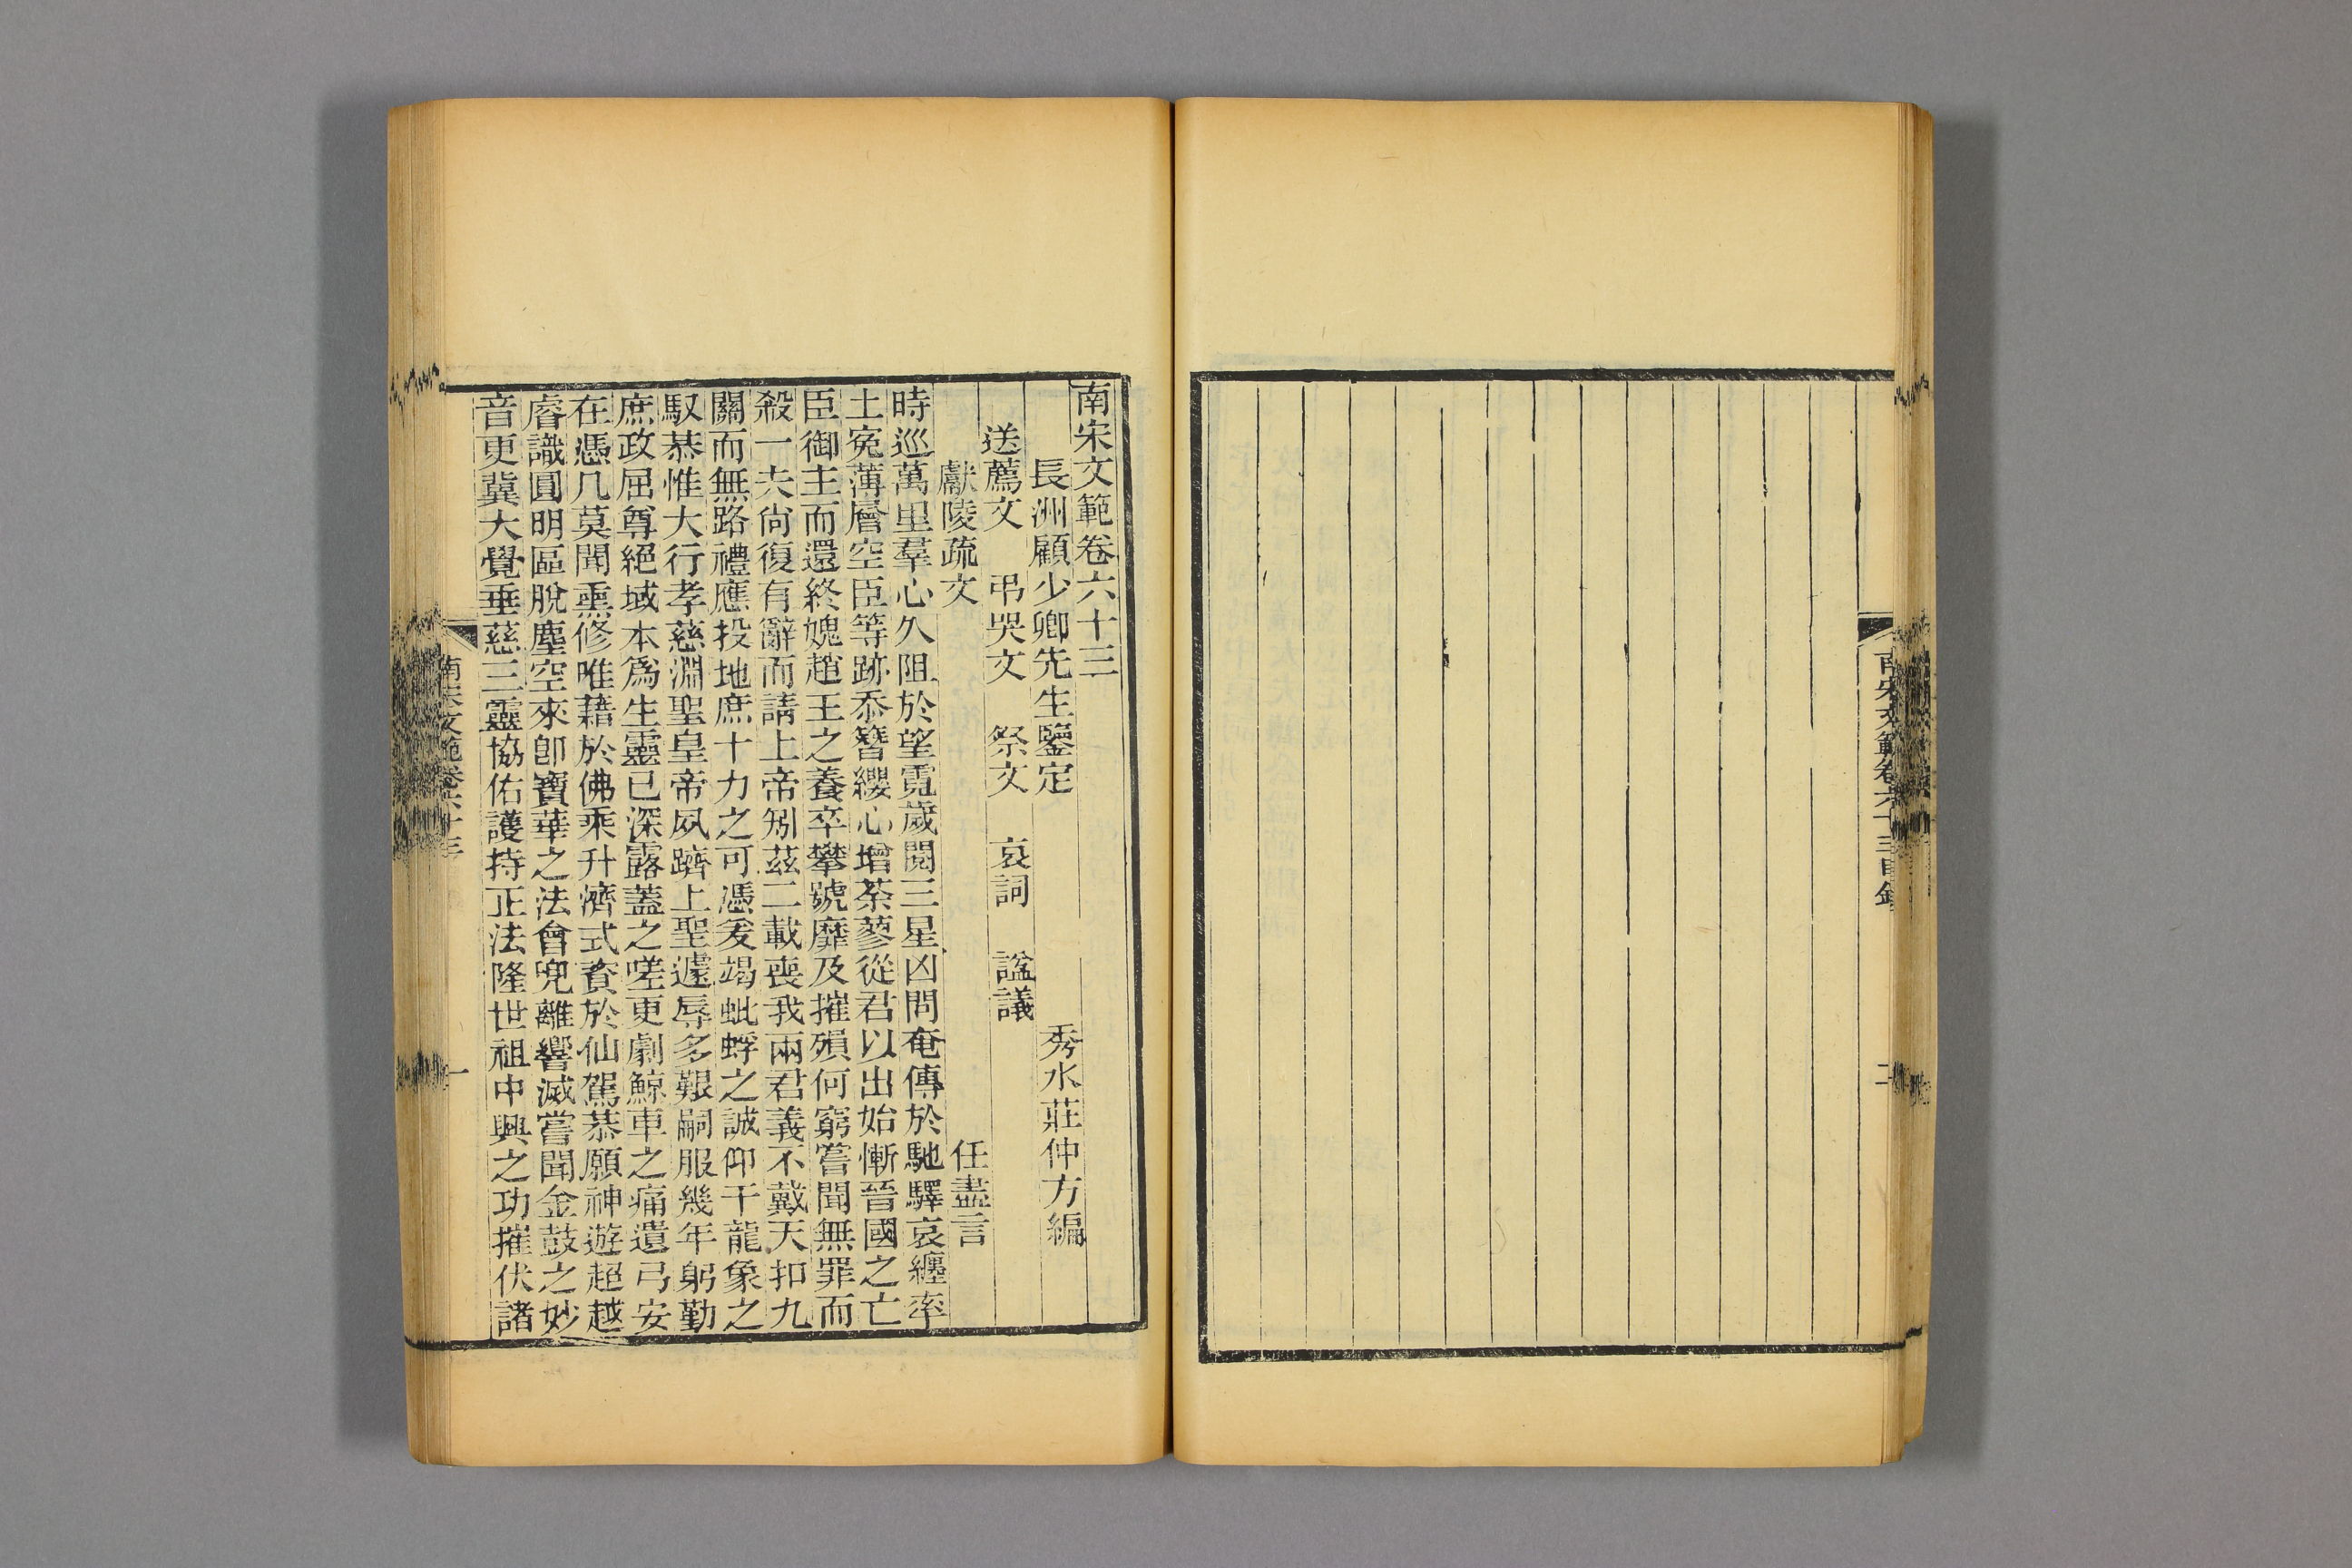 南宋文範卷六十三目錄
二
南宋文範卷六十三
長洲顧少卿先生鑒定　秀水莊仲方編
送薦文　弔哭文　祭文　哀詞　諡議
獻陵疏文　任盡言
時巡萬里羣心久阻於望霓歲閱三星凶問奄傳於馳驛哀纏率
土寃薄層空臣等跡忝簪纓心增荼蓼從君以出始慚晉國之亡
臣御主而還終媿趙王之養卒攀號靡及摧殞何窮嘗聞無罪而
殺一夫尙復有辭而請上帝矧茲二載喪我兩君義不戴天扣九
關而無路禮應投地庶十力之可憑爰竭蚍蜉之誠仰干龍象之
馭恭惟大行孝慈淵聖皇帝夙躋上聖遽辱多艱嗣服幾年躬勤
庶政屈尊絕域本爲生靈已深露蓋之嗟更劇鯨車之痛遺弓安
在憑几莫聞熏修唯藉於佛乘升濟式資於仙駕恭願神遊超越
睿識圓明區脫塵空來卽寶華之法會兜離響滅嘗聞金鼓之妙
音更冀大覺垂慈三靈協佑護持正法隆世祖中興之功摧伏諸
南宋文範卷六十三
一